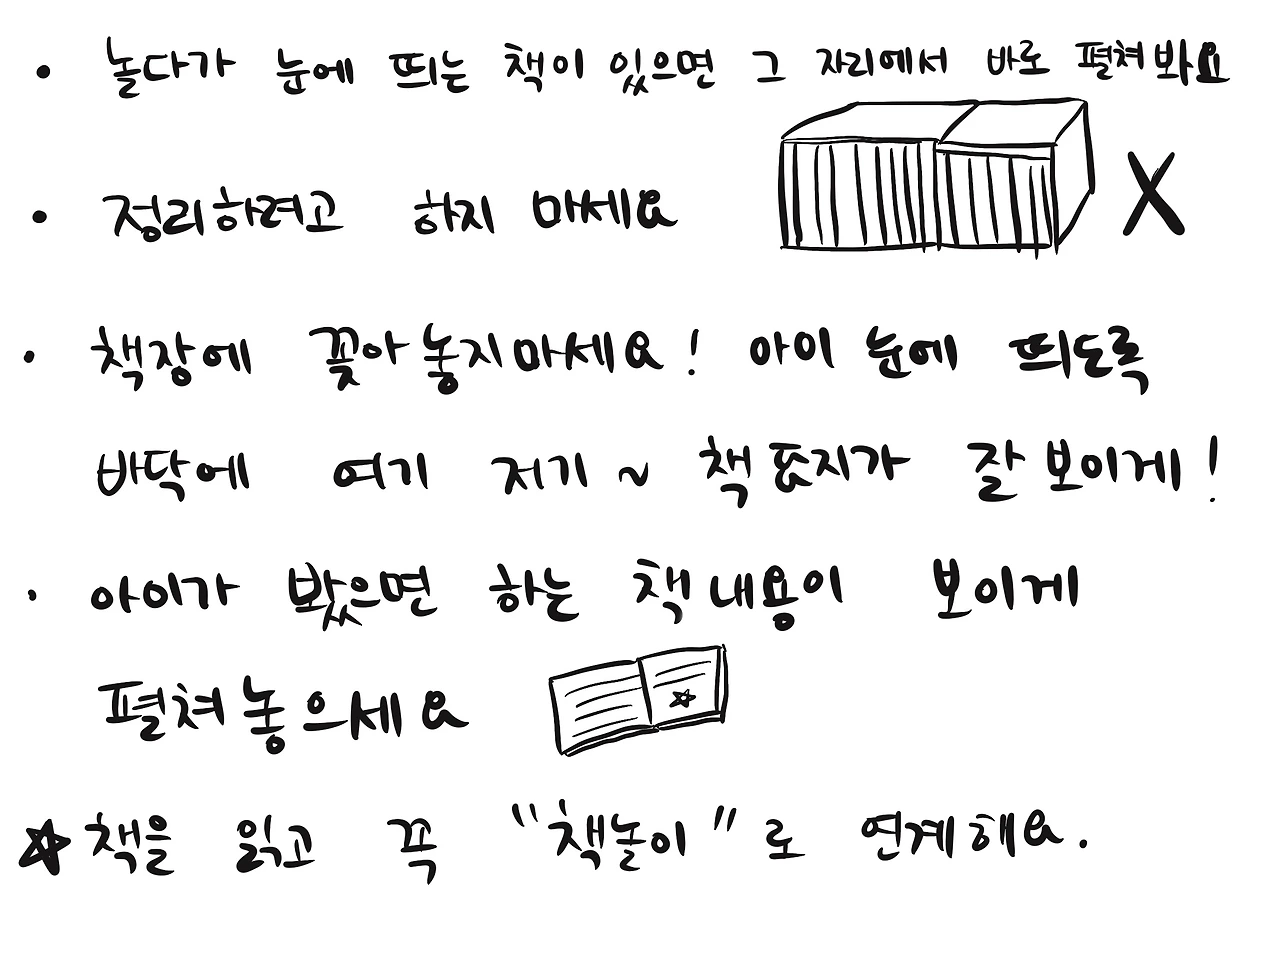 • 놀다가 눈에 띄는 책이 있으면 그 자리에서 바로 펼쳐봐요
• 정리하려고 하지 마세요 X
• 책장에 꽂아놓지마세요! 아이 눈에 띄도록
바닥에 여기 저기~ 책표지가 잘보이게!
• 아이가 봤으면 하는 책내용이 보이게
펼쳐놓으세요
☆ 책을 읽고 꼭 "책놀이"로 연계해요.